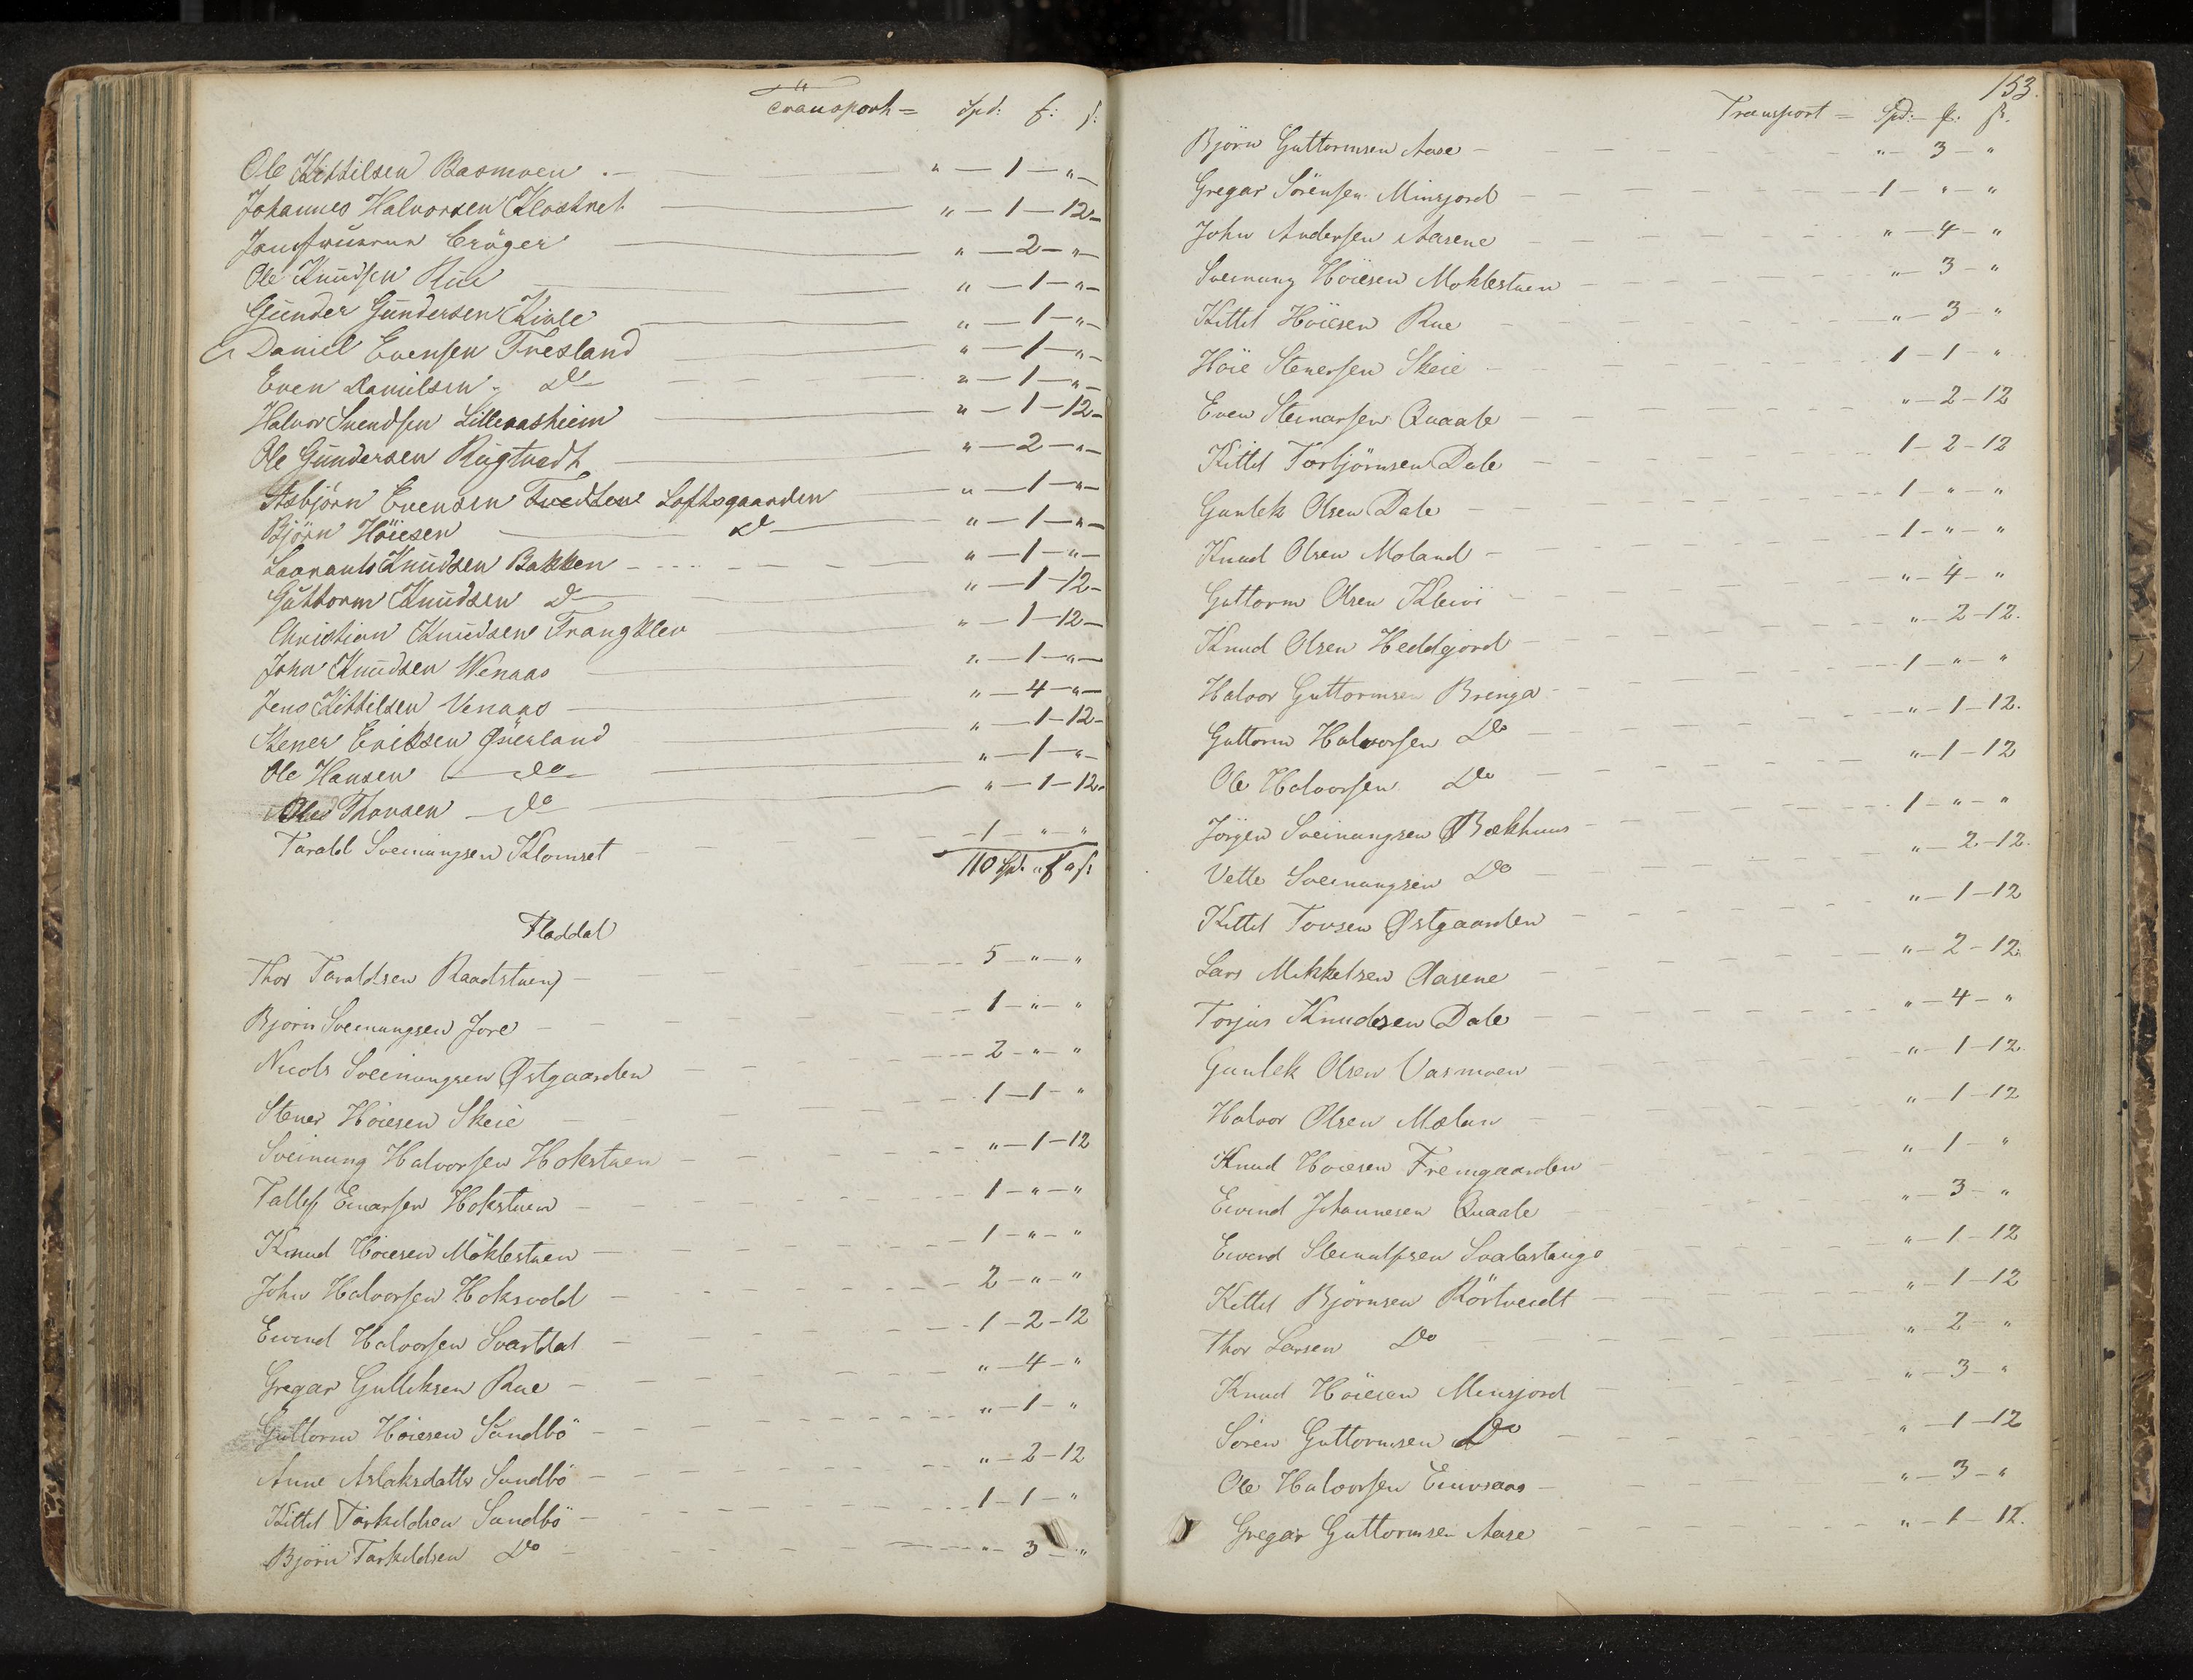 Transport = Spd: f: ſ:
Ole Kittilsen Basmoen „ — 1 — „ —
Johannes Halvorsen Klostret „ — 1 — 12 —
Jomfru Cröger „ — 2 — „ —
Ole Knudsen Rue „ — 1 — „ —
Gunder Gundersen Kivle „ — 1 — „ —
Daniel Evensen Fresland „ — 1 — „ —
Even Danielsen Do „ — 1 — „ —
Halvor Svendsen Lilleaasheim „ — 1 — 12 —
Ole Gundersen Rugtvedt „ — 2 — „ —
Asbjörn Evensen Tvedten Loftsgaarden „ — 1 — „ —
Björn Höiesen Do „ — 1 — „ —
Laurants Knudsen Bakken „ — 1 — „ —
Guttorm Knudsen Do „ — 1 — 12 —
Christian Knudsen Trangklev „ — 1 — 12 —
John Knudsen Wenaas „ — 1 — „ —
Jens Kittilsen Venaas „ — 4 — „ —
Stener Eriksen Øverland „ — 1 — 12 —
Ole Hansen Do „ — 1 — „ —
Ole Thorsen Do „ — 1 — 12 .
Tarald Sveinungsen Klomset 1 — „ — „
110 Spd. „ f „ ſ:
Fladdal
Thor Taraldsen Raadstuen 5 — „ — „
Björn Sveinungsen Jore 1 — „ — „
Nicols Sveinungsen Østgaarden 2 — „ — „
Stener Höiesen Skeie 1 — 1 — „
Sveinung Halvorsen Hokstuen „ — 1 — 12
Tallef Einarsen Hokstuen 1 — „ — „
Knud Höiesen Möklestuen 1 — „ — „
John Halvorsen Hoksvold 2 — „ — „
Eivind Halvorsen Svartdal 1 — 2 — 12
Gregar Gulliksen Rue „ — 4 — „
Guttorm Höiesen Sundbö „ — 1 — „
Anne Aslaksdatter Sundbö „ — 2 — 12
Kittil Torkildsen Sundbö 1 — 1 — „
Björn Torkildsen Do „ 3 — „
153.
Transport = Spd: — f: ſ.
Björn Guttormsen Aase „ — 3 — „
Gregar Sörensen Minsjord 1 — „ — „
John Andersen Aasene „ — 4 — „
Sveinung Höiesen Moklestuen „ — 3 — „
Kittil Höiesen Rue „ — 3 — „
Höie Stenersen Skeie 1 — 1 — „
Even Steinarsen Quaale „ — 2 — 12
Kittil Torbjörnsen Dale 1 — 2 — 12
Gunlek Olsen Dale 1 — „ — „
Knud Olsen Moland 1 — „ — „
Guttorm Olsen Kleivi „ — 4 — „
Knud Olsen Heddejord „ — 2 — 12.
Halvor Guttormsen Brenga 1 — „ — „
Guttorm Halvorsen Do „ — 1 — 12.
Ole Halvorsen Do „ — 1 — 12
Jörgen Sveinungsen Bækhuus 1 — „ — „
Vetle Sveinungsen Do „ — 2 — 12.
Kittil Tovsen Østgaarden „ — 1 — 12
Lars Mikkelsen Aasene „ — 2 — 12.
Torjus Knudsen Dale „ — 4 — „
Gunlek Olsen Vasmoen „ — 1 — 12.
Halvor Olsen Mælum „ — 1 — 12
Knud Höiesen Fremgaarden „ 1 — „
Eivind Johannesen Quaale „ — 3 — „
Eivind Steinulfsen Svalastauge „ — 1 — 12
Kittil Björnsen Körtveidt „ — 1 — 12
Thor Larsen Do „ — 2 — „
Knud Höiesen Minsjord „ — 3 — „
Sören Guttormsen Do „ — 1 — 12
Ole Halvorsen „ — 3 — „
Gregar Guttormsen Aase „ — 1 — 12.